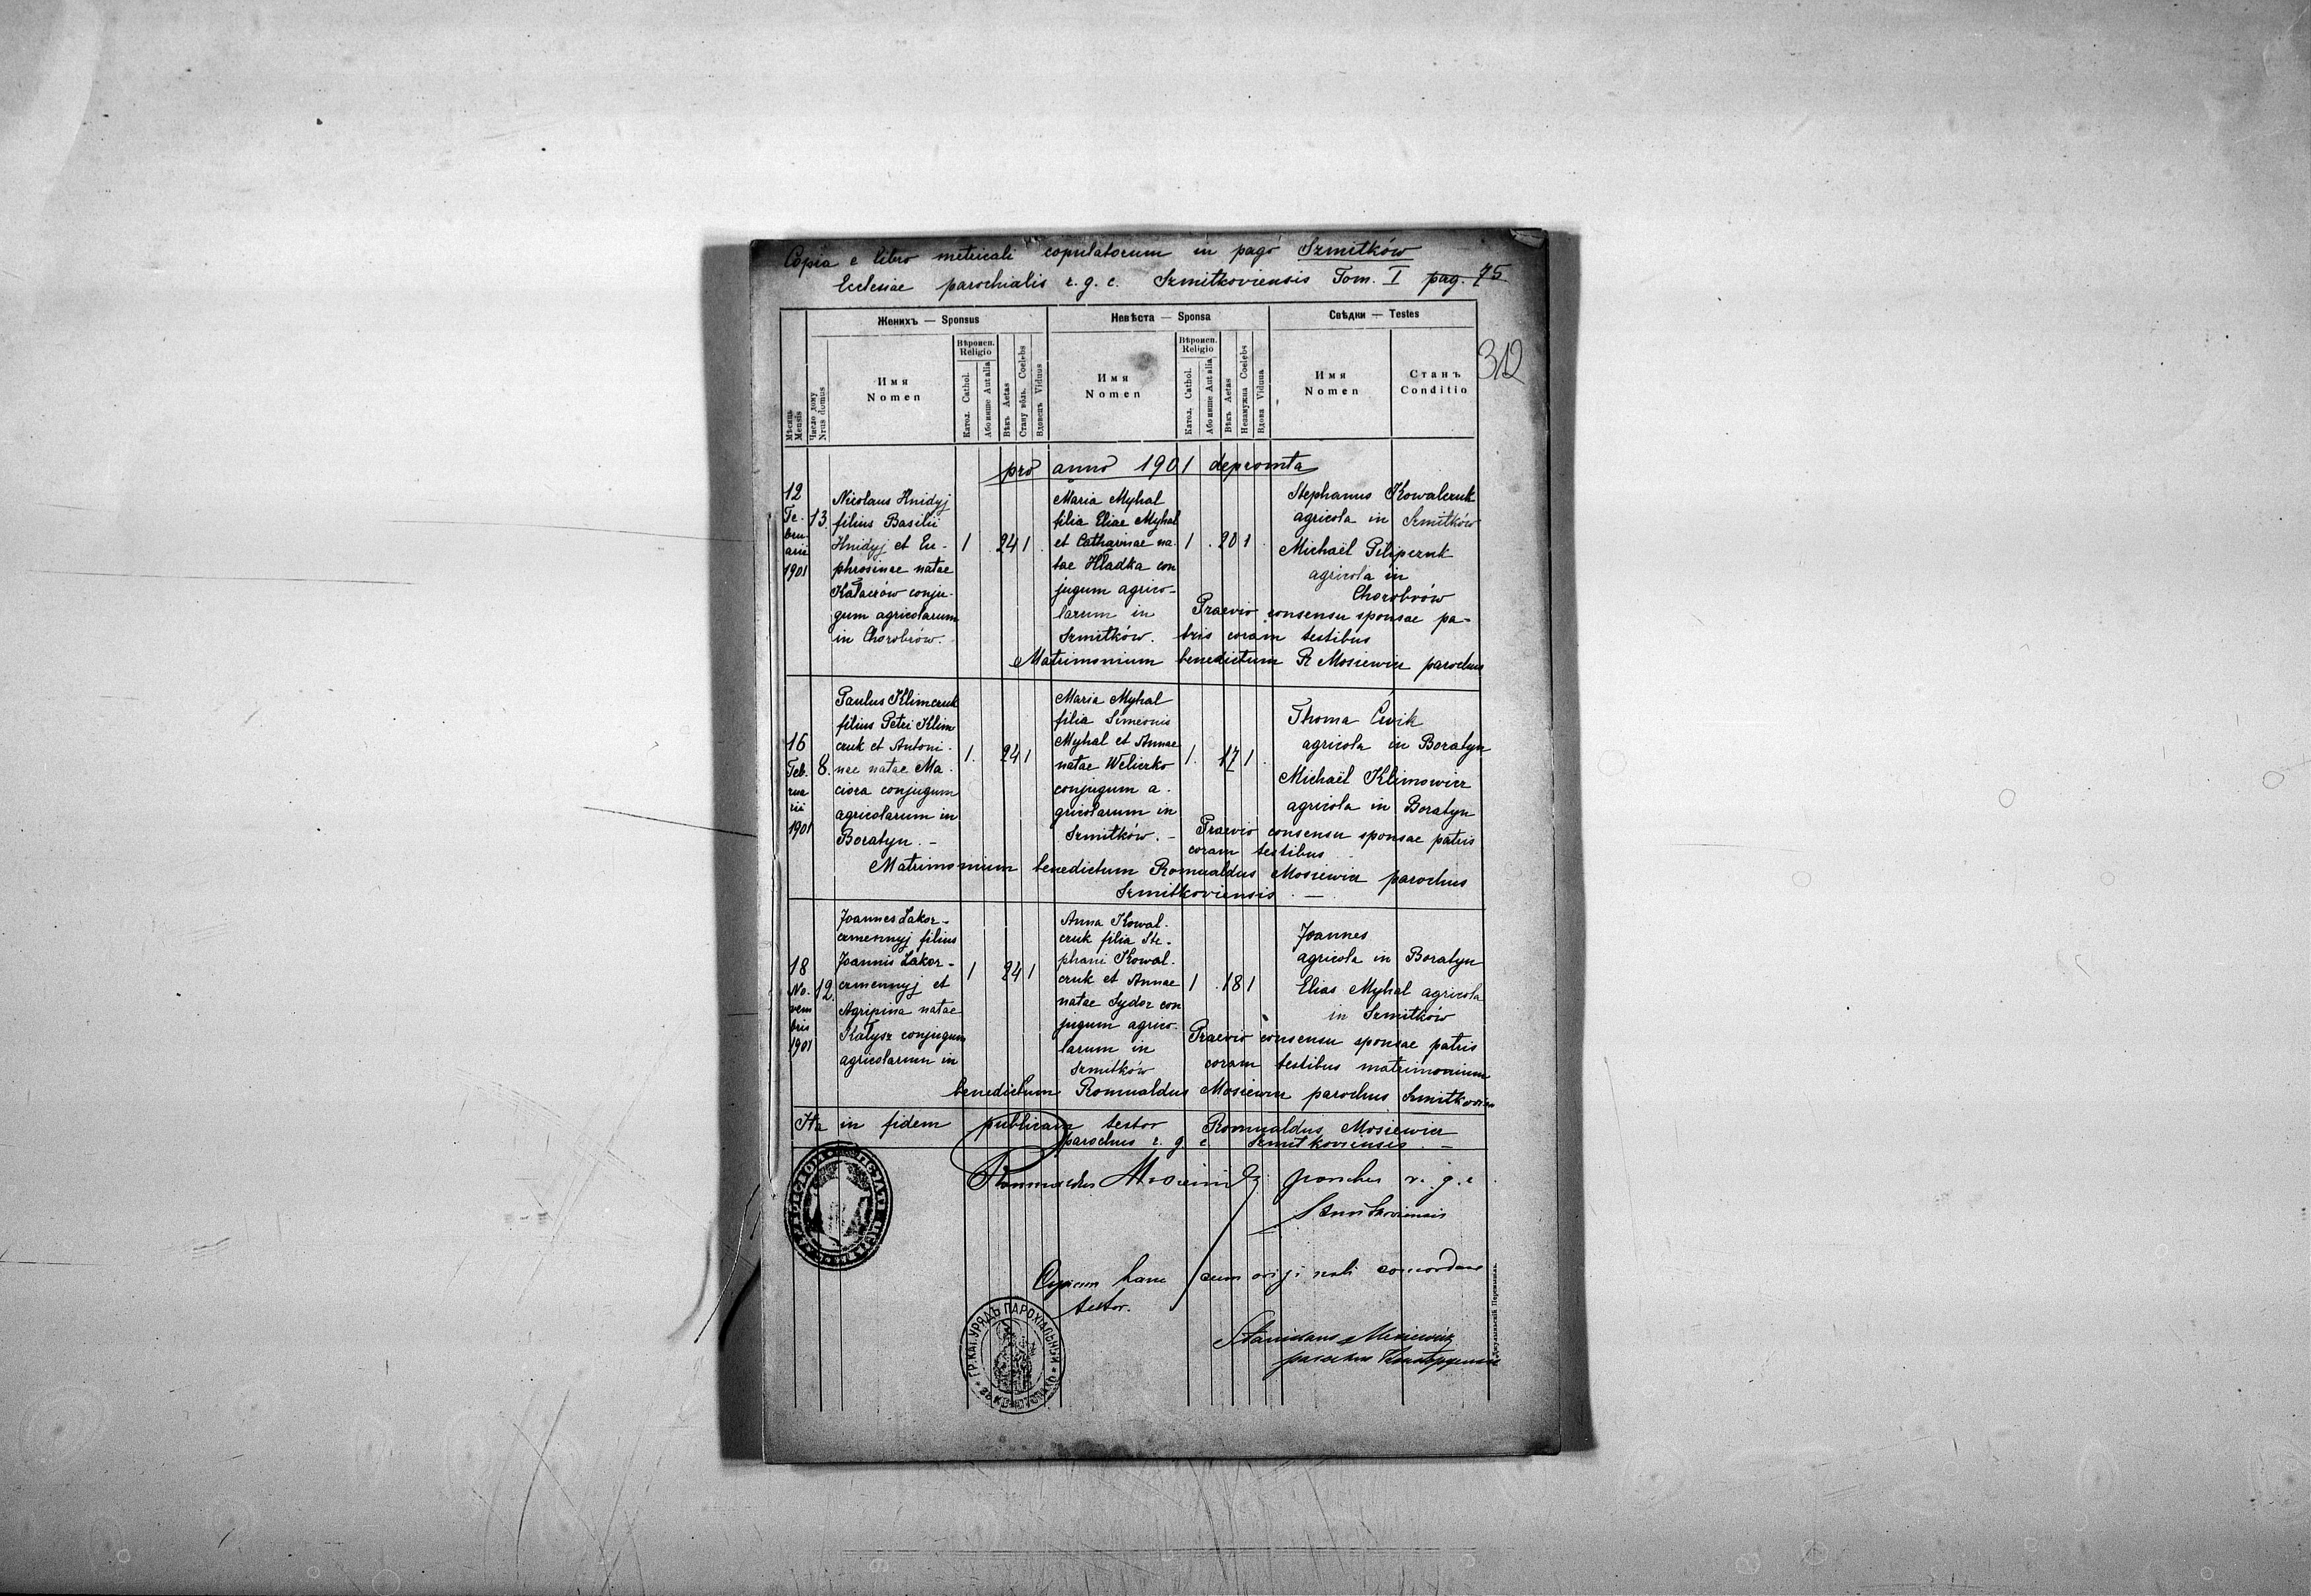 Copia e libro metricali copulatorum in pago Szmitków
Ecclesiae parochialis r. g. c. Szmitkoviensis Tom. I pag. 75
312
Женихъ — Sponsus
Невѣста — Sponsa
Свѣдки — Testes
Мѣсяць Mensis
Число дому Nrus domus
Имя
Nomen
Вѣроисп.
Religio
Катол. Cathol.
Або инше Aut alia
Вѣкъ Aetas
Стану вôльн. Coelebs
Вдовець Viduus
Имя
Nomen
Вѣроисп.
Religio
Катол. Cathol.
Або инше Aut alia
Вѣкъ Aetas
Незамужна Coelebs
Вдова Vidua
Имя
Nomen
Станъ
Conditio
pro anno 1901 depromta
12
Fe-
bru-
arii
1901
13.
Nicolaus Hnidyj
filius Basilii
Hnidyj et Eu-
phrosinae natae
Kałacrów conju-
gum agricolarum
in Chorobrów.
1 . 24 1 .
Maria Myhal
filia Eliae Myhal
et Catharinae na-
tae Hładka con
jugum agrico-
larum in
Szmitków.
1 . 20 1 .
Stephanus Kowalczuk
agricola in Szmitków
Michaël Pilipczuk
agricola in
Chorobrów
Praevio consensu sponsae pa-
tris coram testibus
Matrimonium benedictum R Mosiewicz parochus
16
Feb.
rua
rii
1901
8.
Paulus Klimczuk
filius Petri Klim
czuk et Antoni-
nae natae Ma-
ciora conjugum
agricolarum in
Boratyn. -
1. 24 1
Maria Myhal
filia Simeonis
Myhal et Annae
natae Weliczko
conjugum a-
gricolarum in
Szmitków. -
1. 17 1 .
Thoma Cwik
agricola in Boratyn
Michaël Klimowicz
agricola in Boratyn
Praevio consensu sponsae patris
coram testibus
Matrimonium benedictum Romualdus Mosiewicz parochus
Szmitkoviensis. —
18
No-
vem
bris
1901
12.
Joannes Zakor-
czmennyj filius
Joannis Zakor-
czmennyj et
Agripina natae
Kałysz conjugum
agricolarum in
1 24 1
Anna Kowal-
czuk filia Ste-
phani Kowal-
czuk et Annae
natae Sydor con
jugum agrico-
larum in
Szmitków
1 . 18 1
Joannes
agricola in Boratyn
Elias Myhal agricola
in Szmitków
Praevio consensu sponsae patris
coram testibus matrimonium
benedictum Romualdus Mosiewicz parochus Szmitkovien
Ita in fidem publicam testor Romualdus Mosiewicz
parochus r. g. c. Szmitkoviensis. —
Romualdus Mosiewicz parochus r. g. c
Szmitkoviensis
Copiam hanc cum originali concordare
testor.
ГР.КАТ.УРЯДЪ ПАРОХІАЛЬНЫЙ
Stanislaus Mosiewicz
parochus